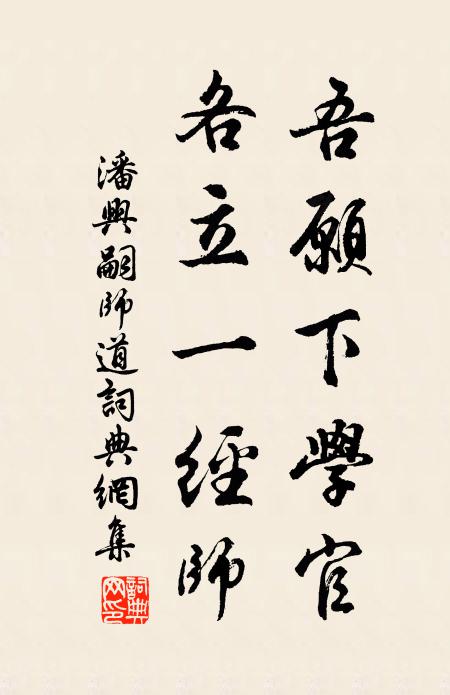 吾願下學官
各立一經師
潘興嗣師道詞典網集
詞典网印